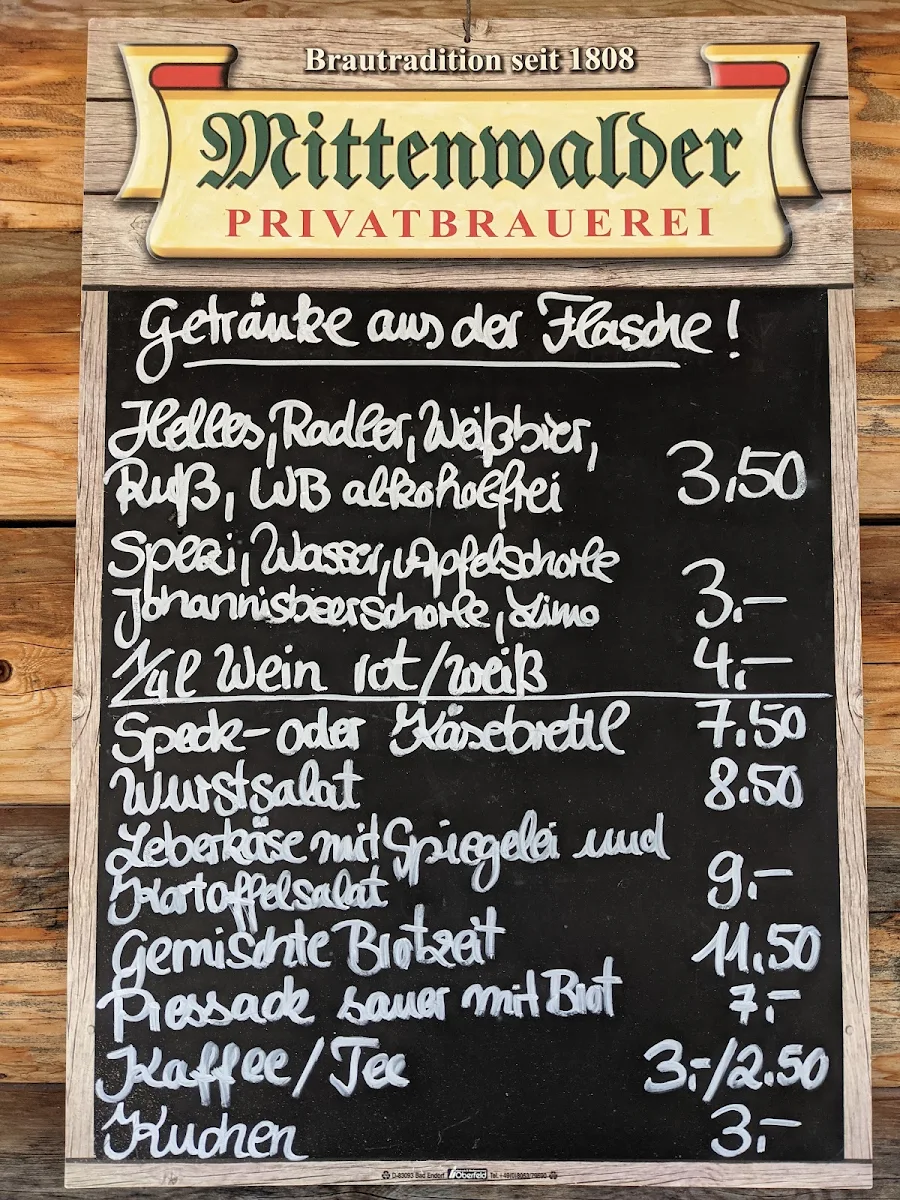 Brautradition seit 1808
Mittenwalder
PRIVATBRAUEREI
Getränke aus der Flasche!
Helles, Radler, Weißbier,
Ruß, WB alkoholfrei 3,50
Spezi, Wasser, Apfelschorle
Johannisbeerschorle, Limo 3.-
1/4l Wein rot/weiß 4.-
Speck- oder Käsebrettl 7.50
Wurstsalat 8.50
Leberkäse mit Spiegelei und
Kartoffelsalat 9.-
Gemischte Brotzeit 11.50
Pressack sauer mit Brot 7.-
Kaffee/Tee 3.-/2.50
Kuchen 3.-
D-83093 Bad Endorf Oberfeld